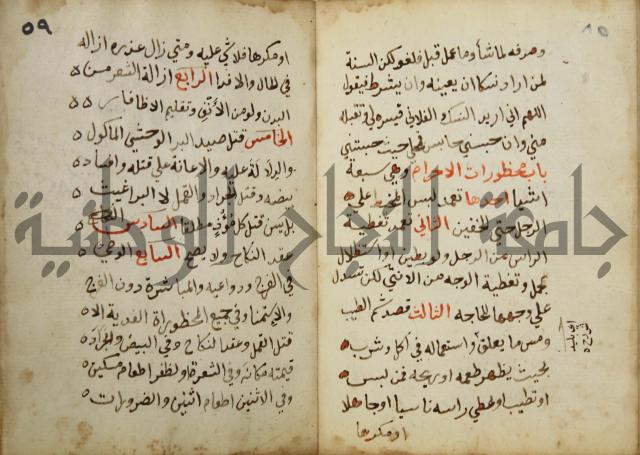 وصرفه لما شا وما عمل قبل فلغو لكن السنة
لمن اراد نسكا ان يعينه وان يشترط فيقول
اللهم اني اريد النسك الفلاني فيسره لي وتقبله
مني وان حبسني حابس فمحلي حيث حبستني
باب محظورات الاحرام وهي سبعة
اشيا احدها تعمد لبس المخيط علي
الرجل حتي الخفين الثاني تعمد تغطية
الراس من الرجل ولو بطين او استظلال
بمحمل وتغطية الوجه من الانثي لكن تسدل
علي وجهها للحاجه الثالث قصد شم الطيب
ومس ما يعلق واستعماله في اكل وشرب
بحيث يظهر طعمه او ريحه فمن لبس
او تطيب او غطي راسه ناسيا او جاهلا
او مكرها
٥٩
او مكرها فلا شي عليه ومتي زال عذره ازاله
في الحال والا فدا الرابع ازالة الشعر من
البدن ولو من الأنف وتقليم الاظافار
الخامس قتل صيد البر الوحشي الماكول
والدلالة عليه والاعانة علي قتله وافساد
بيضه وقتل الجراد والقمل لا البراغيث
بل يسن قتل كل موذي مطلقا السادس
عقد النكاح ولا يصح السابع الوطي
في الفرج ودواعيه والمباشرة دون الفرج
والاستمنا وفي جميع المحظورات الفدية الا
قتل القمل وعقد النكاح وفي البيض والجراد
قيمته مكانه وفي الشعرة او الظفر اطعام مسكين
وفي الاثنين اطعام اثنين والضرورات
جامعة النجاح الوطنية